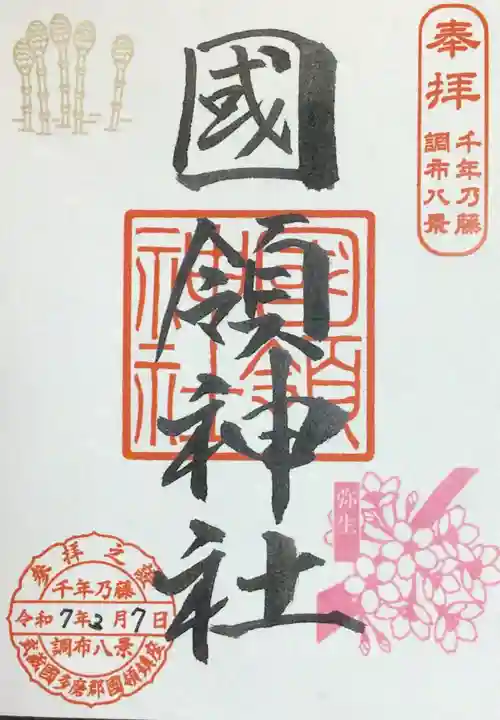 奉拝
千年乃藤
調布八景
國領神社
國領
神社
弥生
参拝之證
千年乃藤
令和7年2月7日
調布八景
武蔵國多磨郡國領鎮座